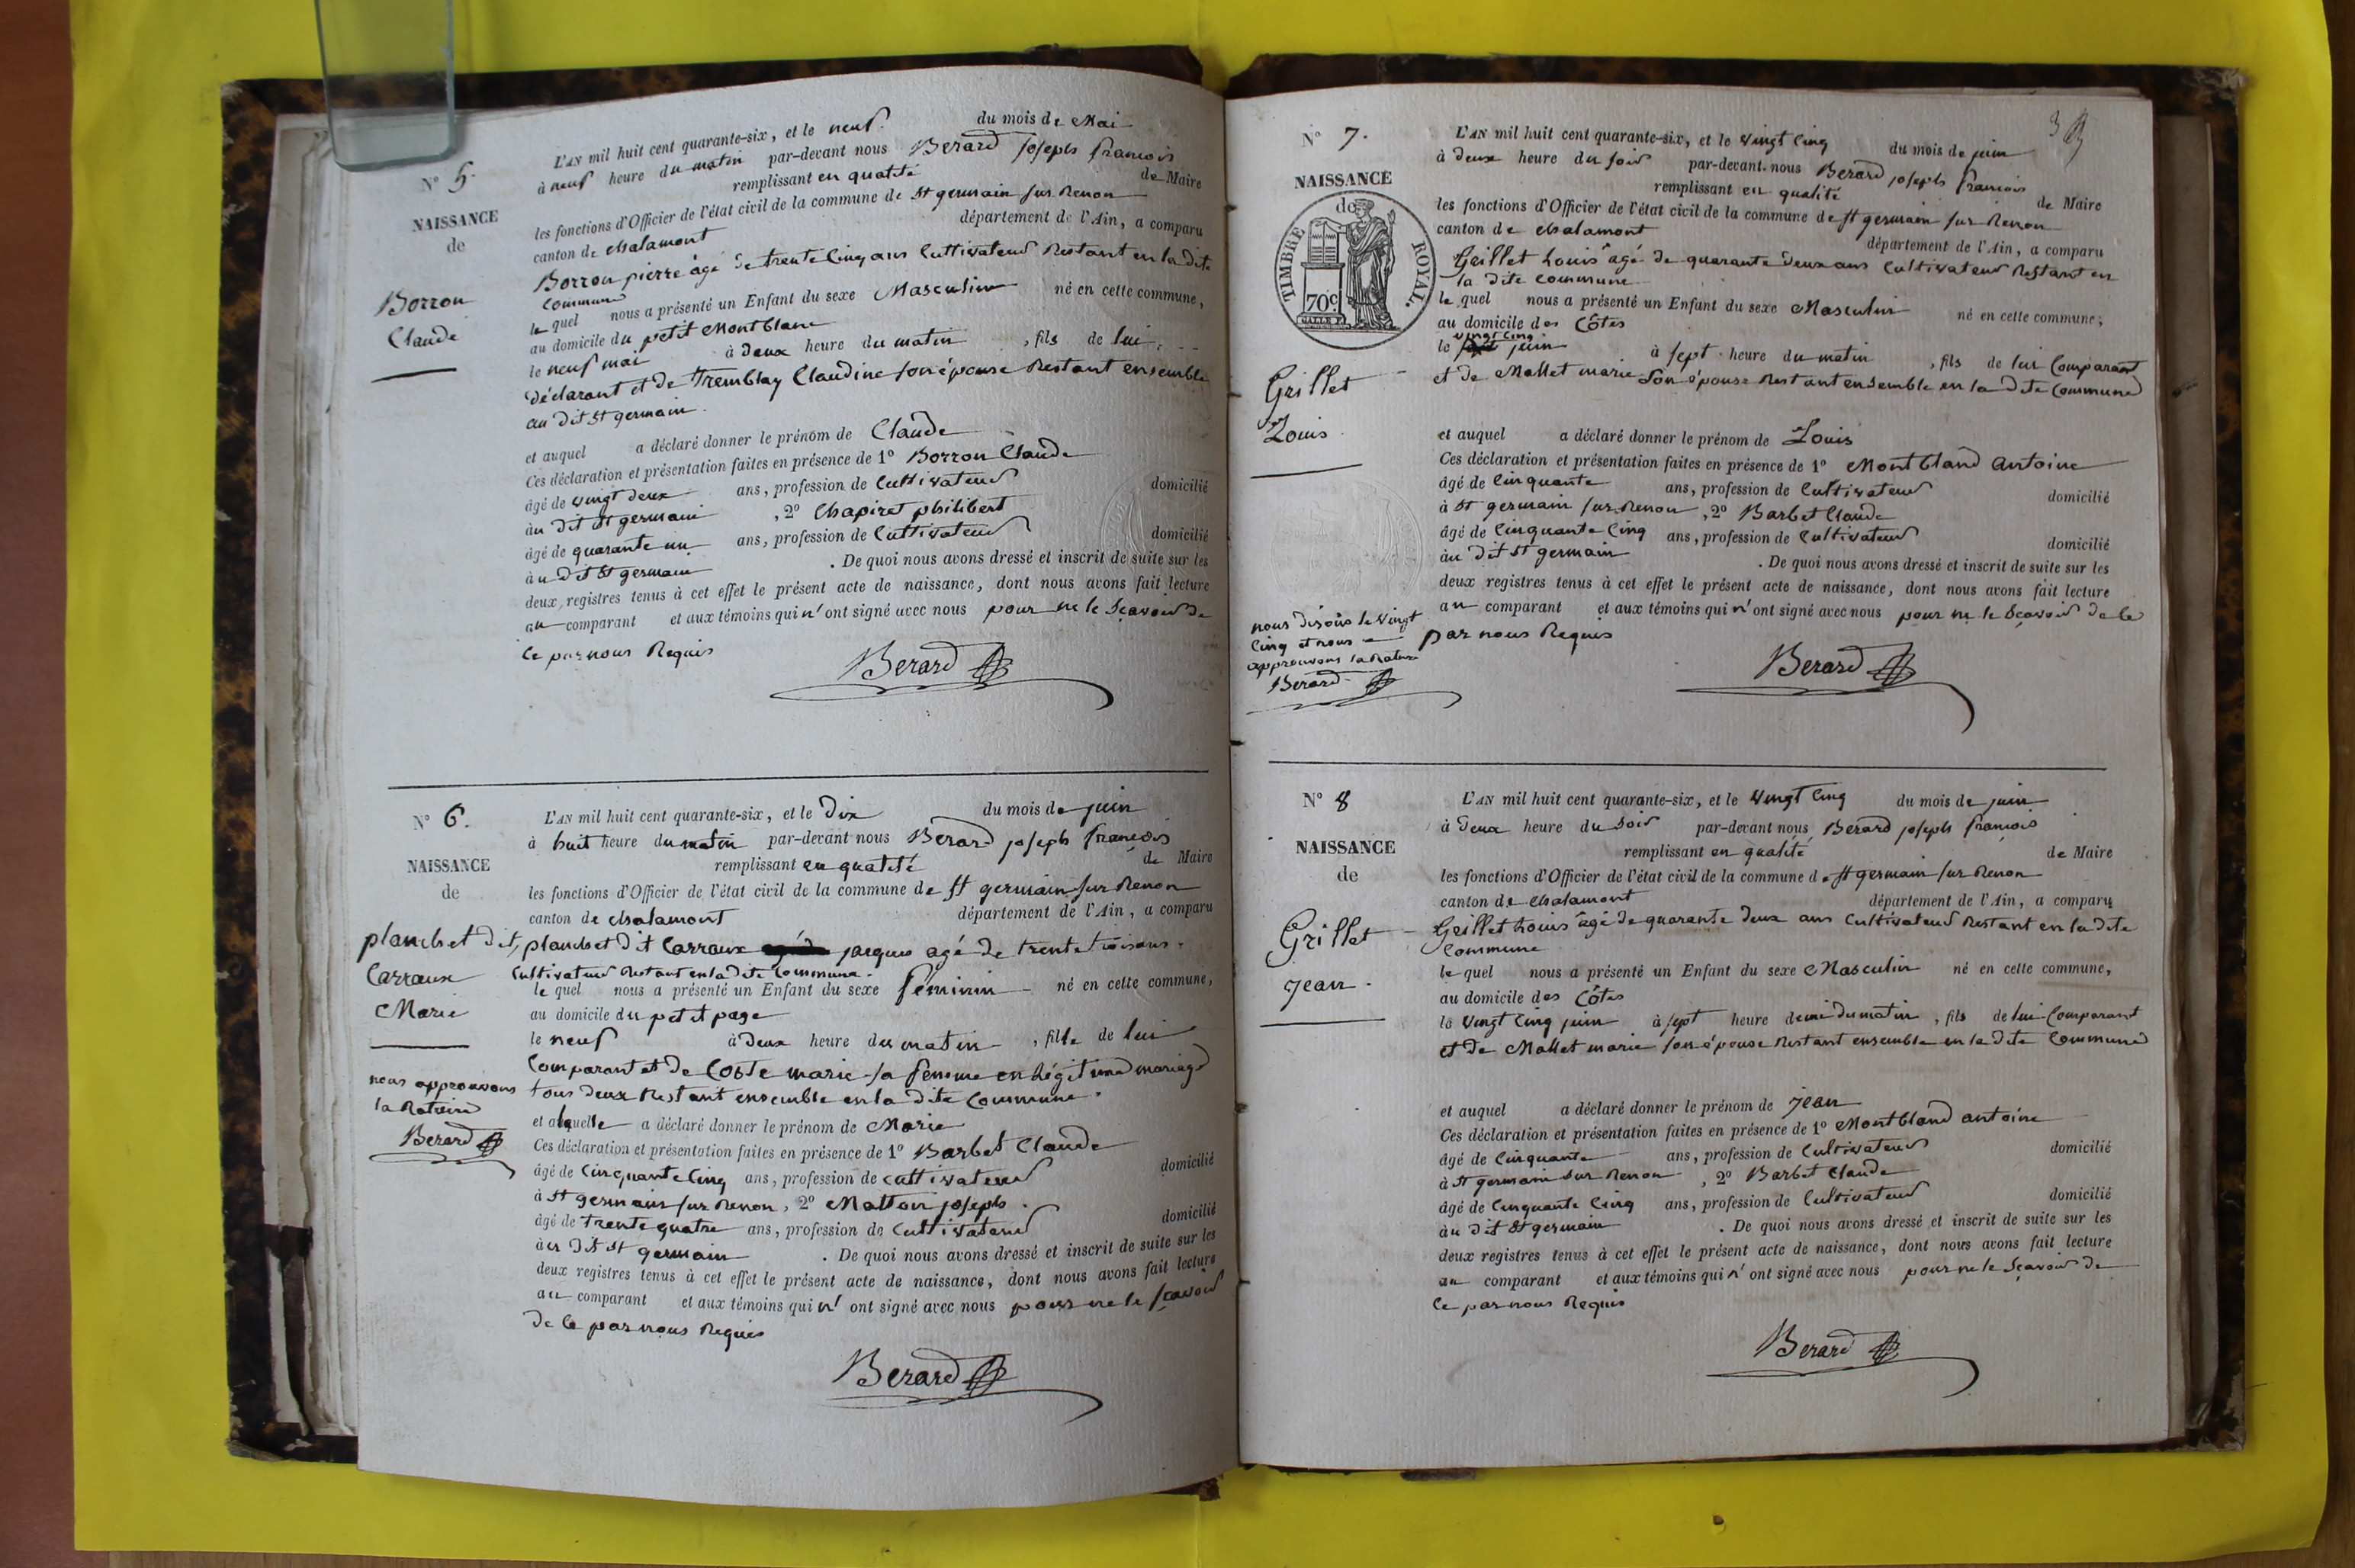 N° 5.
NAISSANCE
de
Borron
Claude
L'AN mil huit cent quarante-six, et le neuf du mois de Mai
à neuf heure du matin par-devant nous Berard joseph francois
remplissant en qualité de Maire
les fonctions d'Officier de l'état civil de la commune de St germain sur Renon
canton de Chalamont département de l'Ain, a comparu
Borron pierre âgé de trente Cinq ans Cultivateur Restant en la dite
Commune
le quel nous a présenté un Enfant du sexe Masculin né en cette commune,
au domicile du petit Montblanc
le neuf mai à deux heure du matin, fils de lui
déclarant et de Tremblay Claudine son épouse Restant ensemble
au dit St germain.
et auquel a déclaré donner le prénom de Claude
Ces déclaration et présentation faites en présence de 1° Borron Claude
âgé de vingt deux ans, profession de Cultivateur domicilié
àu dit St germain, 2° Chapiret philibert
âgé de quarante un ans, profession de Cultivateur domicilié
àu dit St germain. De quoi nous avons dressé et inscrit de suite sur les
deux registres tenus à cet effet le présent acte de naissance, dont nous avons fait lecture
au comparant et aux témoins qui n'ont signé avec nous pour ne le Sçavoir de
Ce par nous Requis
Berard
N° 6.
NAISSANCE
de
planchet dit
Carraux
Marie
nous approuvons
la Rature
Berard
L'AN mil huit cent quarante-six, et le dix du mois de juin
à huit heure du matin par-devant nous Berard joseph françois
remplissant en qualité de Maire
les fonctions d'Officier de l'état civil de la commune de St germain sur Renon
canton de Chalamont département de l'Ain, a comparu
planchet dit Carraux jacques agé de trente trois ans
Cultivateur Restant en la dite Commune.
le quel nous a présenté un Enfant du sexe féminin né en cette commune,
au domicile du petit page
le neuf à deux heure du matin, fille de lui
Comparant et de Coste marie sa femme en Légitime mariage
tous deux Restant ensemble en la dite Commune.
et alquelle a déclaré donner le prénom de Marie
Ces déclaration et présentation faites en présence de 1° Barbet Claude
âgé de Cinquante Cinq ans, profession de cultivateur domicilié
à St germain sur Renon, 2° Matton joseph
âgé de trente quatre ans, profession de Cultivateur domicilié
àu dit St germain. De quoi nous avons dressé et inscrit de suite sur les
deux registres tenus à cet effet le présent acte de naissance, dont nous avons fait lecture
au comparant et aux témoins qui n'ont signé avec nous pour ne le sçavoir
de Ce par nous Requis
Berard
3
N° 7.
NAISSANCE
de
TIMBRE ROYAL.
70c
Grillet
Louis
nous disons le Vingt
Cinq et nous
approuvons la Rature
Berard
L'AN mil huit cent quarante-six, et le Vingt Cinq du mois de juin
à deux heure du soir par-devant nous Berard joseph francois
remplissant en qualité de Maire
les fonctions d'Officier de l'état civil de la commune de St germain sur Renon
canton de Chalamont département de l'Ain, a comparu
Grillet Louis âgé de quarante deux ans Cultivateur Restant en
la dite Commune
le quel nous a présenté un Enfant du sexe Masculin né en cette commune,
au domicile des Côtes
vingt Cinq
le juin à sept heure du matin, fils de lui Comparant
et de Mallet marie Son épouse Restant ensemble en la dite Commune
et auquel a déclaré donner le prénom de Louis
Ces déclaration et présentation faites en présence de 1° Montbland antoine
âgé de Cinquante ans, profession de Cultivateur domicilié
à St germain sur Renon, 2° Barbet Claude
âgé de Cinquante Cinq ans, profession de Cultivateur domicilié
àu dit St germain. De quoi nous avons dressé et inscrit de suite sur les
deux registres tenus à cet effet le présent acte de naissance, dont nous avons fait lecture
au comparant et aux témoins qui n'ont signé avec nous pour ne le Sçavoir de Ce
par nous Requis
Berard
N° 8
NAISSANCE
de
Grillet
jean
L'AN mil huit cent quarante-six, et le Vingt Cinq du mois de juin
à deux heure du Soir par-devant nous Berard joseph françois
remplissant en qualité de Maire
les fonctions d'Officier de l'état civil de la commune de St germain sur Renon
canton de Chalamont département de l'Ain, a comparu
Grillet Louis âgé de quarante deux ans Cultivateur Restant en la dite
Commune
le quel nous a présenté un Enfant du sexe Masculin né en cette commune,
au domicile des Côtes
le Vingt Cinq juin à sept heure demi du matin, fils de lui Comparant
et de Mallet marie son épouse Restant ensemble en la dite Commune
et auquel a déclaré donner le prénom de jean
Ces déclaration et présentation faites en présence de 1° Montbland antoine
âgé de Cinquante ans, profession de Cultivateur domicilié
à St germain sur Renon, 2° Barbet Claude
âgé de Cinquante Cinq ans, profession de Cultivateur domicilié
àu dit St germain. De quoi nous avons dressé et inscrit de suite sur les
deux registres tenus à cet effet le présent acte de naissance, dont nous avons fait lecture
au comparant et aux témoins qui n'ont signé avec nous pour ne le Sçavoir de
Ce par nous Requis
Berard